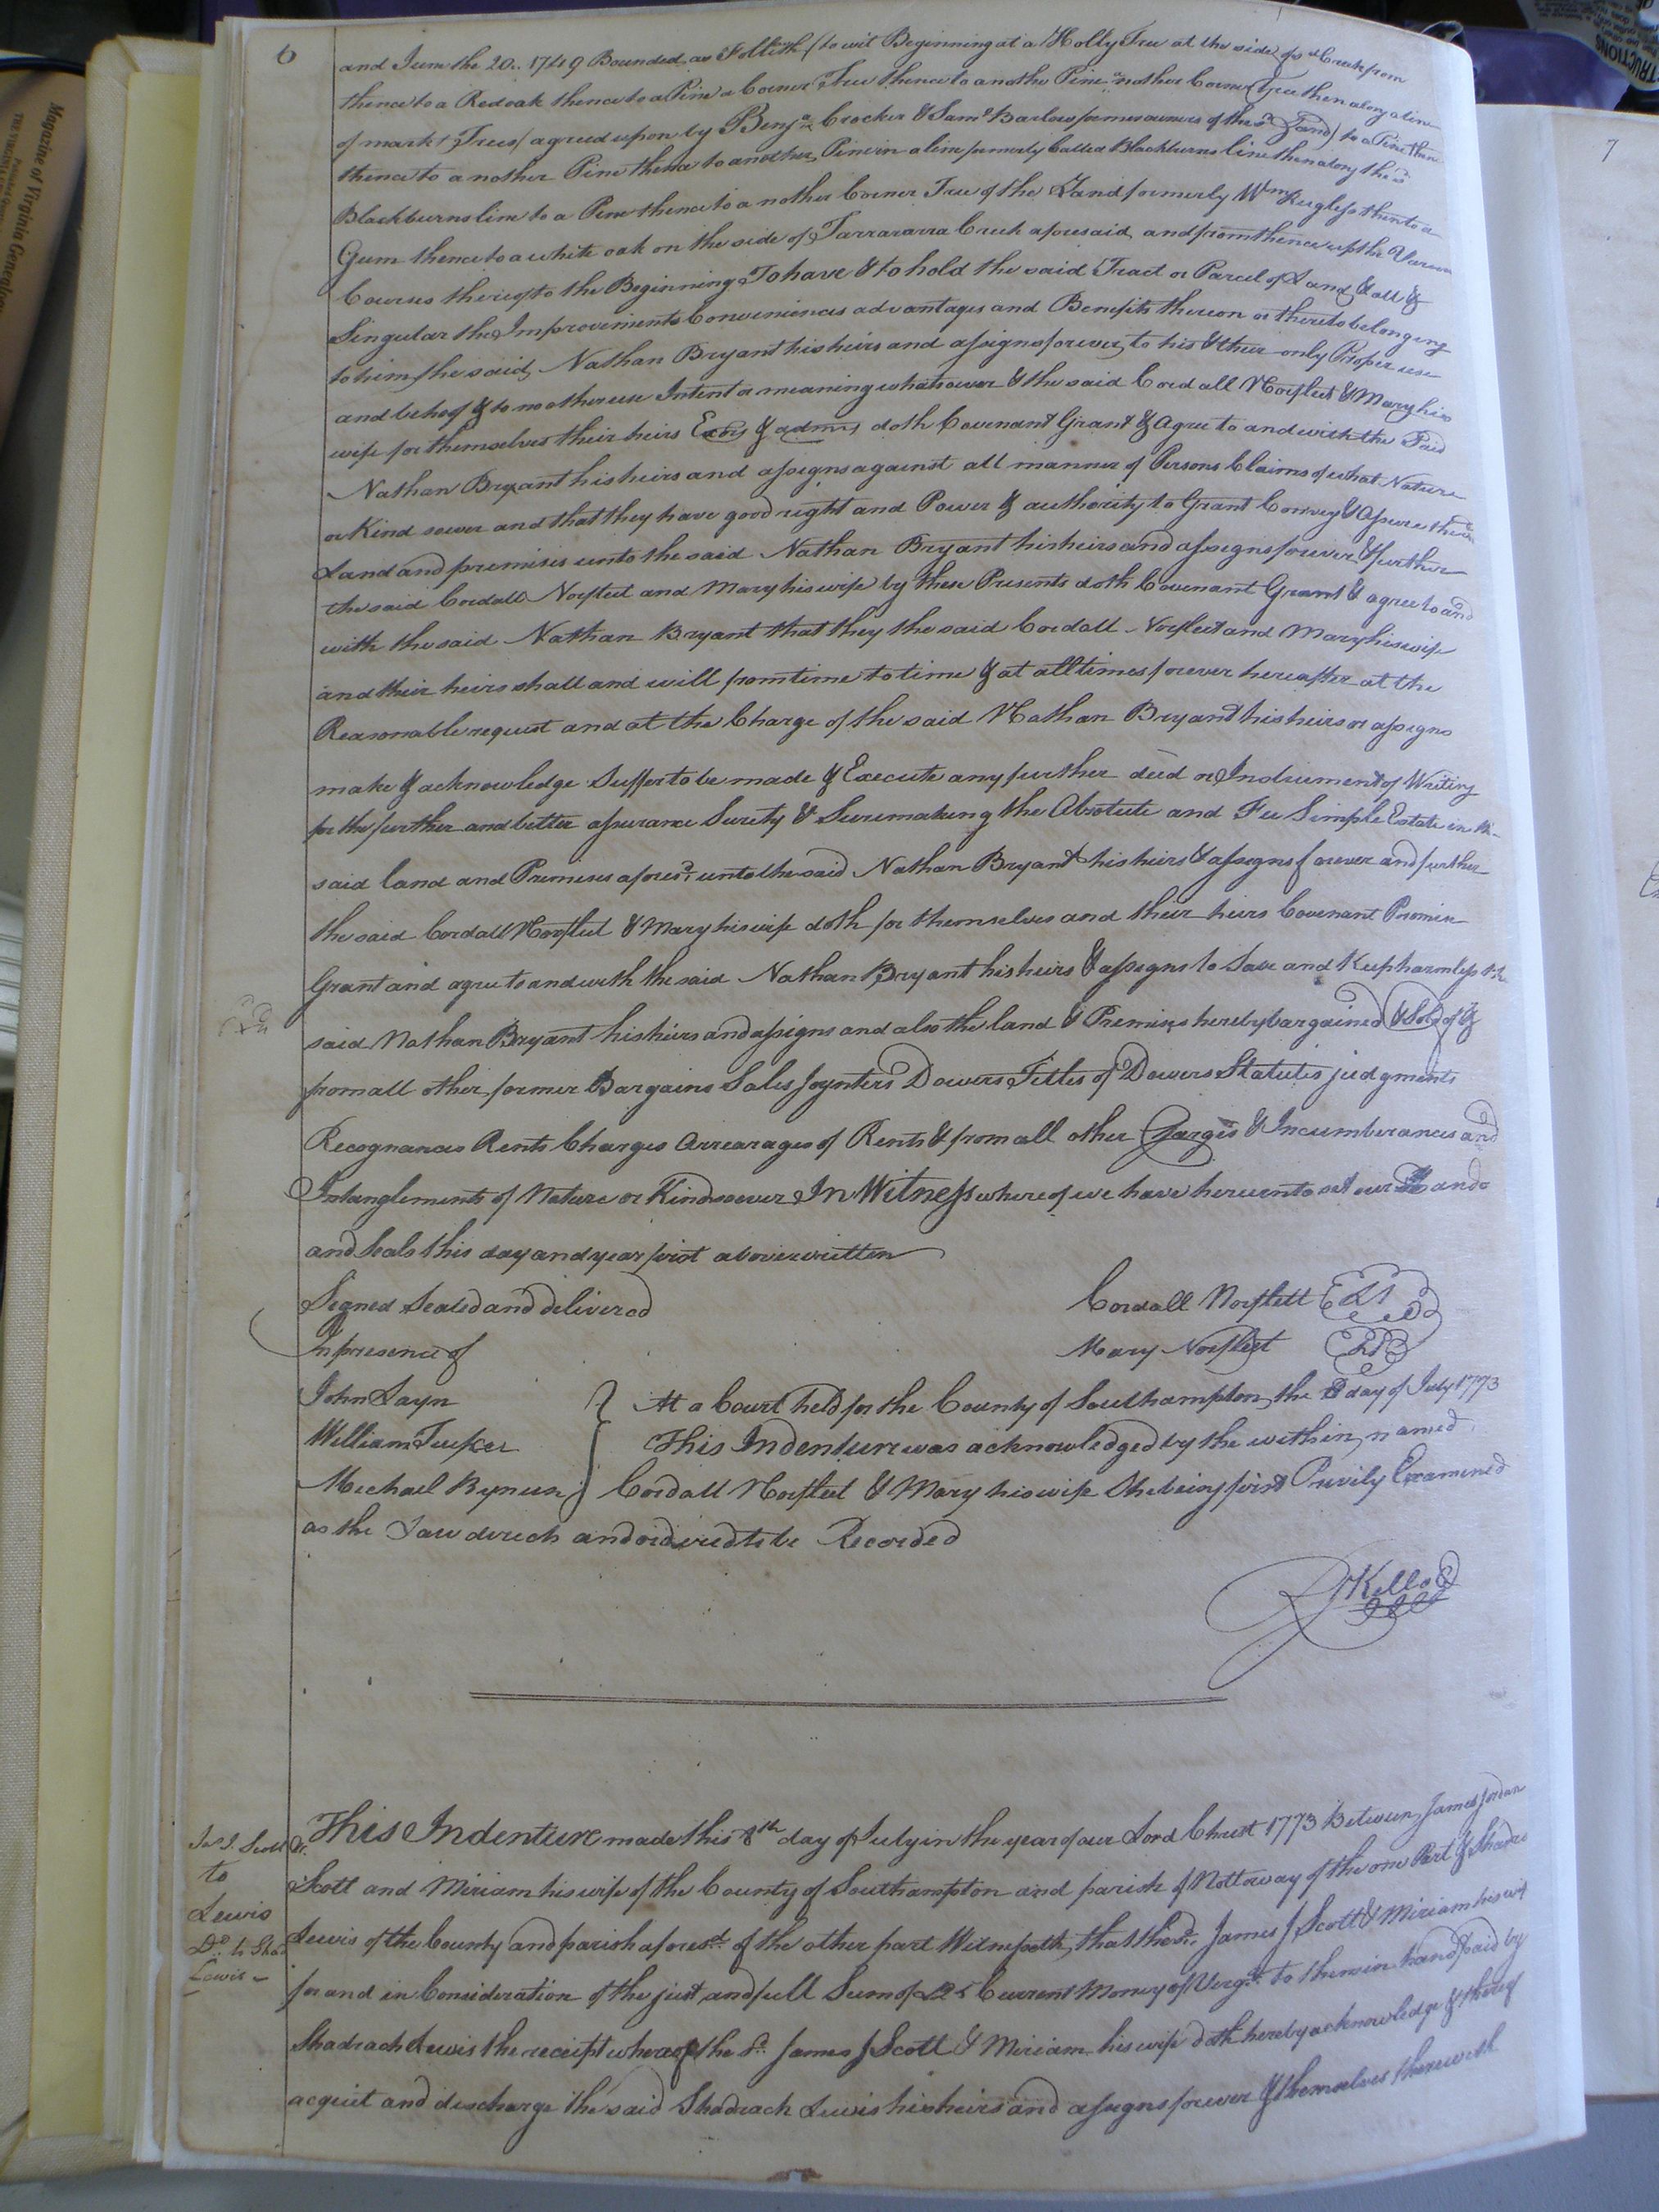 6
and June the 20.. 1749 Bounded as Followeth (to wit Beginning at a Holly Tree at the side of sd Creek from
thence to a Red oak thence to a Pine a Corner Tree thence to another Pine another Corner Tree then along a line
of markt Trees (agreed upon by Benja Crocker & Saml Barlow former owners of the sd Land) to a Pine then
thence to a nother Pine thence to another Pine in a line formerly Called Blackburns line then along the sd
Blackburns line to a Pine thence to a nother Corner Tree of the Land formerly Wm then to a
Gum thence to a white oak on the side of Tarrararra Creek aforesaid and from thence up the Various
Courses thereof to the Beginning To have & to hold the said Tract or Parcel of Land & all &
Singular the Improvements Conveniences advantages and Benefits thereon or thereto belonging
to him the said Nathan Bryant his heirs and assigns forever to his & their only Proper use
and behoof & to no other use Intent or meaning whatsoever & the said Cordall Norfleet & Mary his
wife for themselves their heirs Exors & admrs doth Covenant Grant & Agree to and with the Said
Nathan Bryant his heirs and assigns against all manner of Persons Claims of what Nature
or Kind soever and that they have good right and Power & authority to Grant Convey & Assure the sd
Land and premises unto the said Nathan Bryant his heirs and assigns forever & further
the said Cordall Norfleet and Mary his wife by these Presents doth Covenant Grant & agree to and
with the said Nathan Bryant that they the said Cordall Norfleet and Mary his wife
and their heirs shall and will from time to time & at all times forever hereafter at the
Reasonable request and at the Charge of the said Nathan Bryant his heirs or assigns
make & acknowledge Suffer to be made & Execute any further deed or Instrument of Writing
for the further and better assurance Surety & Suremaking the Absolute and Fee Simple Estate in the
said land and Premises aforesd. unto the said Nathan Bryant his heirs & assigns forever and further
the said Cordall Norfleet & Mary his wife doth for themselves and their heirs Covenant Promise
Grant and agree to and with the said Nathan Bryant his heirs & assigns to Save and Keep harmless the
said Nathan Bryant his heirs and assigns and also the land & Premises hereby bargained & Sold of &
from all other former Bargains Sales Joynters Dowers Titles of Dowers Statutes judgments
Recognances Rents Charges Arrearages of Rents & from all other Charges & Incumberances and
Intanglements of Nature or Kind soever In Witness whereof we have hereunto set our Hands
and Seals this day and year first above written
Signed Sealed and delivered Cordall Norflett LS
In presence of Mary Norfleet LS
John Layn At a Court held for the County of Southampton the 8 day of July 1773
William Tucker This Indenture was acknowledged by the within named
Mechael Rynun Cordall Norfleet & Mary his wife She being first Privily Examined
as the Law direch and ordered to be Recorded
R Kello
This Indenture made this 8th day of July in the year of our Lord Christ 1773 Between James Jordan
Jas J. Scott &c.
to
Lewis
Dd. to Shad
Lewis
Scott and Miriam his wife of the County of Southampton and parish of Nottoway of the one Part & Shadra
Lewis of the County and parish aforesd. of the other part Witnesseth, that the sd. James J Scott & Miriam his wif
for and in Consideration of the just and full Sum of Current Money of Virga. to them in hand paid by
Shadrach Lewis the receipt whereof the sd. James J Scott & Miriam his wife doth hereby acknowledge & thereof
acquit and discharge the said Shadrach Lewis his heirs and assigns forever & themselves therewith
7
Magazine of Virginia Genealogy